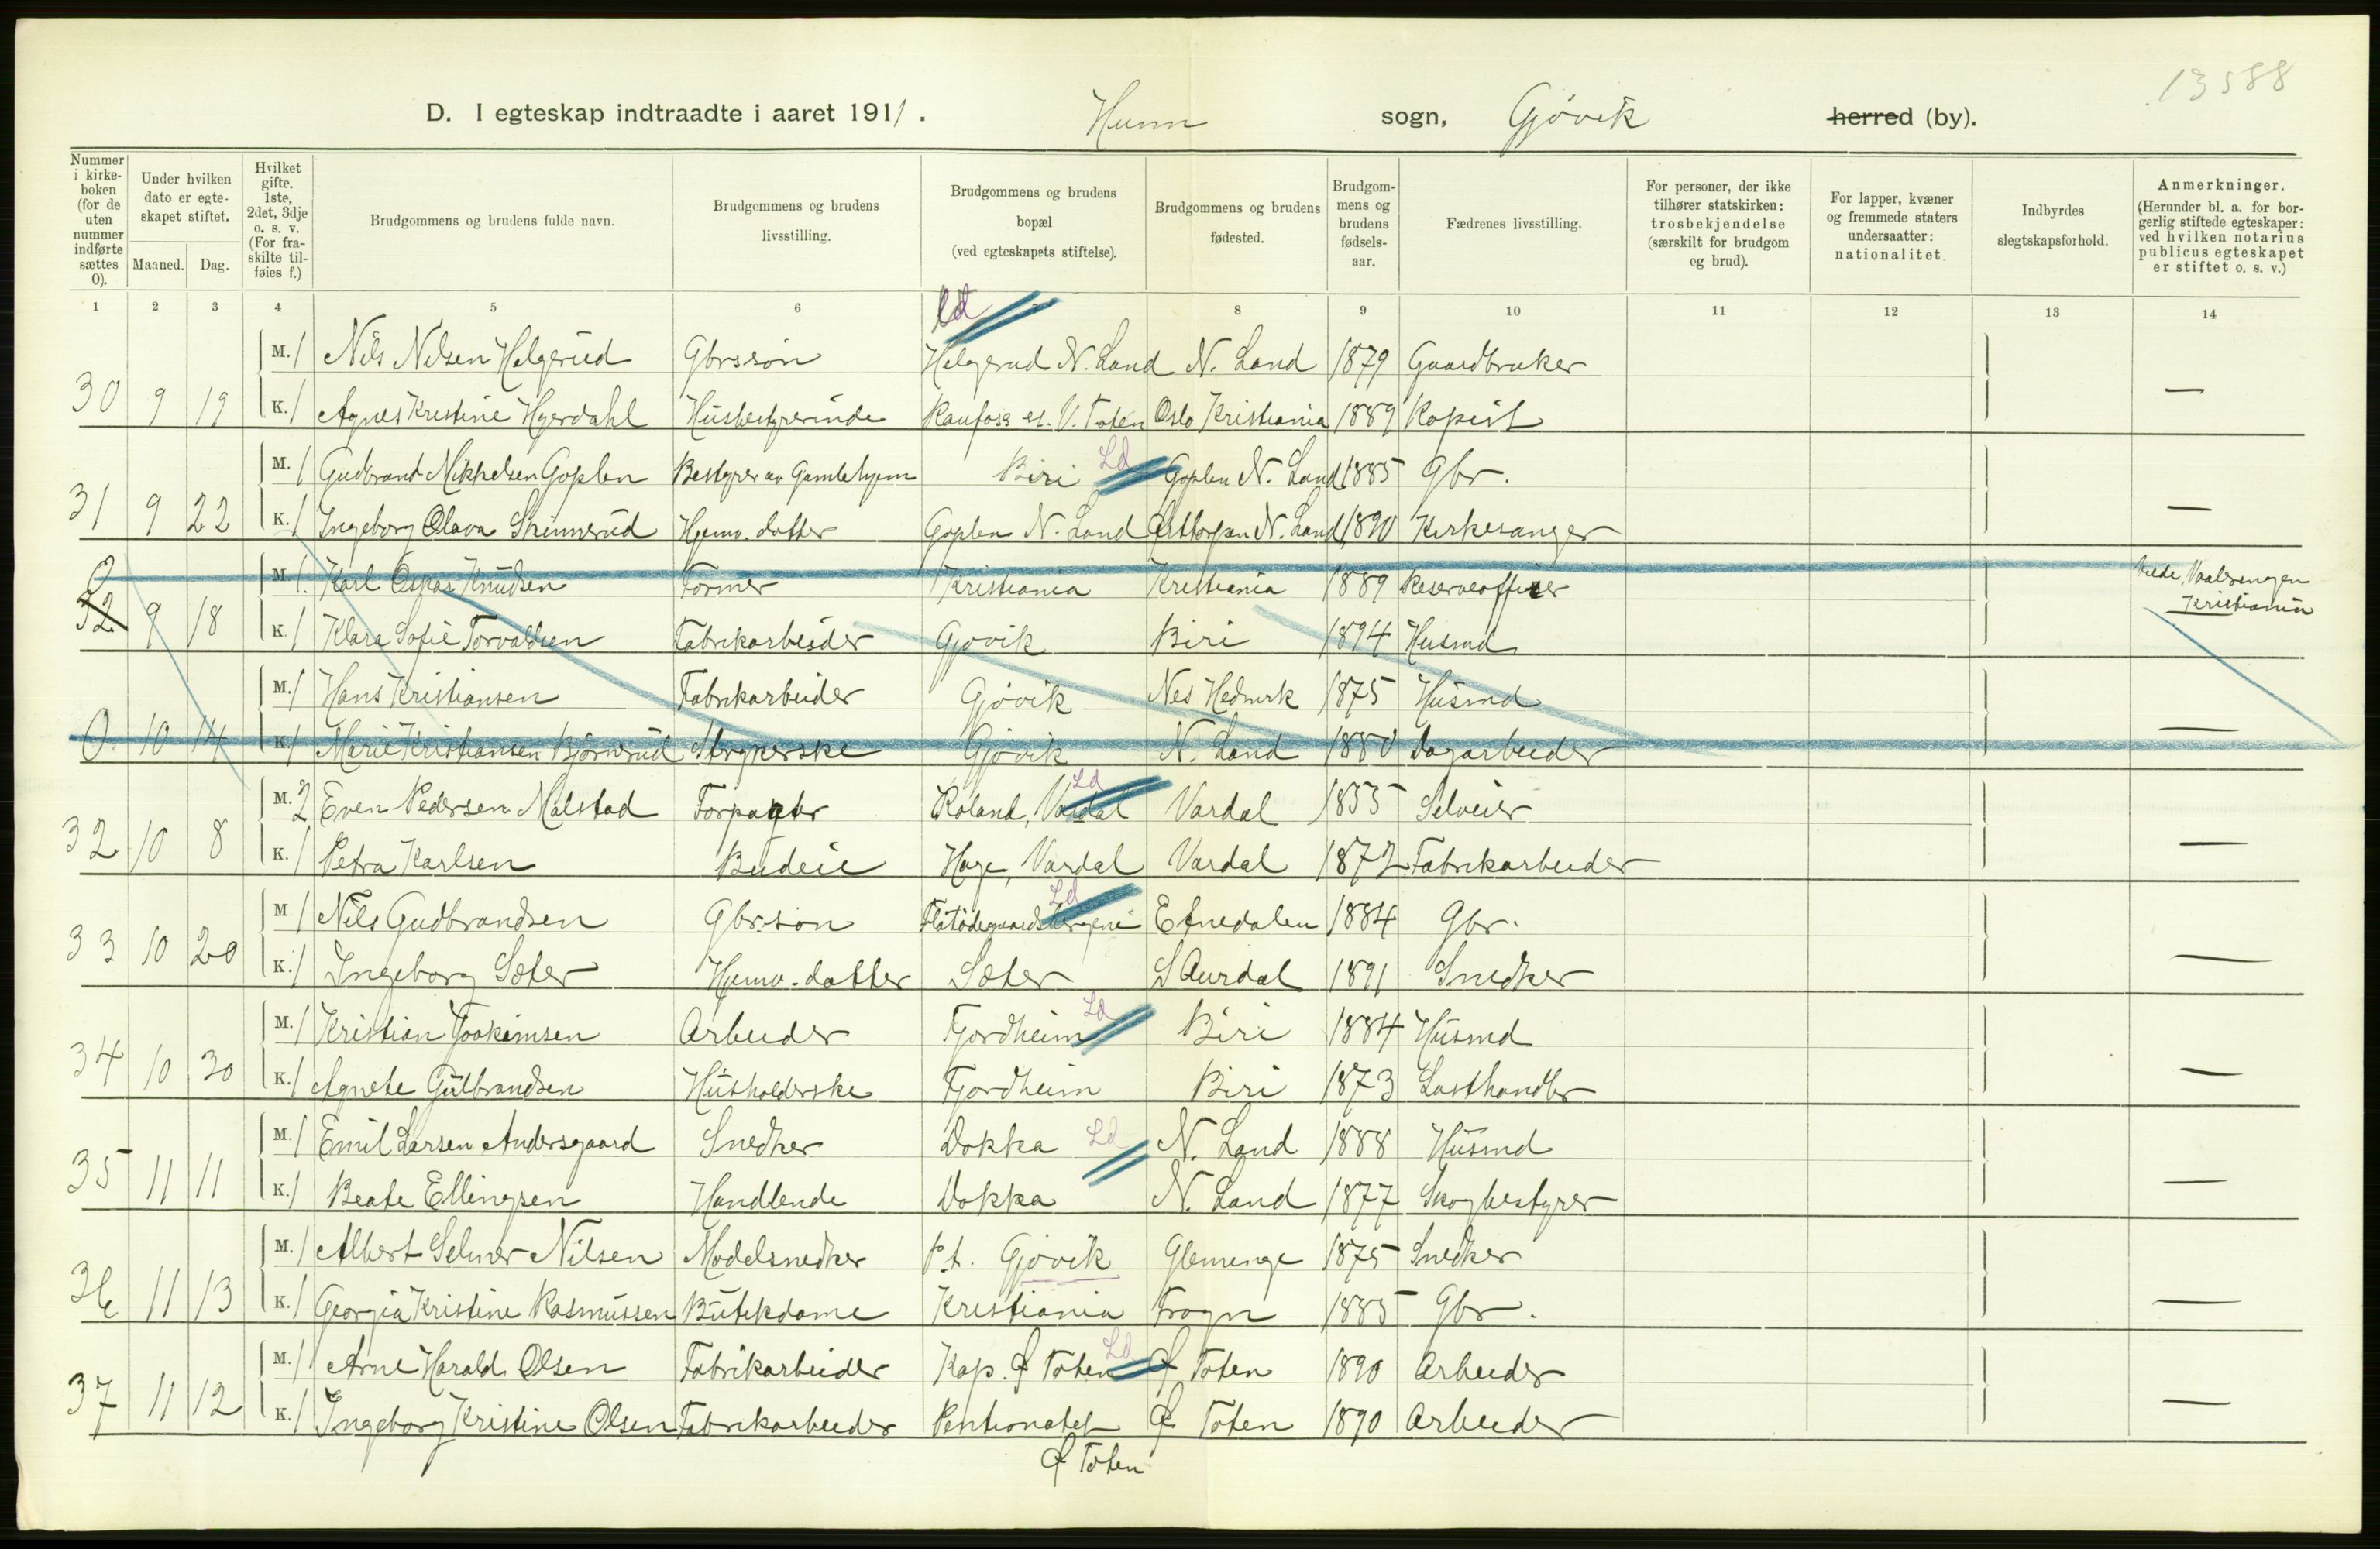 13588
D. I egteskap indtraadte i aaret 1911. Hunn sogn, Gjøvik herred (by).
Nummer i kirkeboken (for de uten nummer indførte sættes 0).
Under hvilken dato er egteskapet stiftet.
Maaned. Dag.
Hvilket gifte. 1ste, 2det, 3dje o. s. v. (For fraskilte tilføies f.)
Brudgommens og brudens fulde navn.
Brudgommens og brudens livsstilling.
Brudgommens og brudens bopæl (ved egteskapets stiftelse).
Brudgommens og brudens fødested.
Brudgommens og brudens fødselsaar.
Fædrenes livsstilling.
For personer, der ikke tilhører statskirken: trosbekjendelse (særskilt for brudgom og brud).
For lapper, kvæner og fremmede staters undersaatter: nationalitet.
Indbyrdes slegtskapsforhold.
Anmerkninger. (Herunder bl. a. for borgerlig stiftede egteskaper: ved hvilken notarius publicus egteskapet er stiftet o. s. v.)
1 2 3 4 5 6 8 9 10 11 12 13 14
Ld
M. 1 Nils Nilsen Helgerud Gbrssøn Helgerud N. Land N. Land 1879 Gaardbruker
30 9 19 K. 1 Agnes Kristine Hjerdahl Husbestyrerinde Raufoss st. V. Toten Oslo Kristiania 1889 Kopist —
M. 1 Gudbrand Mikkelsen Goplen Bestyrer av Gamlehjem Biri Ld Goplen N. Land 1885 Gbr.
31 9 22 K. 1 Ingeborg Olava Skinnerud Hjemv. datter Goplen N. Land N. Land 1890 Kirkesanger —
0 M. 1 Karl Oskar Knudsen Former Kristiania Kristiania 1889 Reserveofficer Vaalerengen Kristiania
32 9 18 K. 1 Klara Sofie Torvaldsen Fabrikarbeider Gjøvik Biri 1894 Husmd
M. 1 Hans Kristiansen Fabrikarbeider Gjøvik Nes Hedmrk 1875 Husmd
0 10 14 K. 1 Marie Kristiansen Bjørnerud Strykerske Gjøvik N. Land 1880 Dagarbeider —
M. 2 Even Pedersen Malstad Forpagter Roland, Vardal Ld Vardal 1855 Selveier
32 10 8 K. 1 Petra Karlsen Budeie Hage, Vardal Vardal 1872 Fabrikarbeider —
M. 1 Nils Gudbrandsen Gbr.søn Ld Etnedalen 1884 Gbr.
33 10 20 K. 1 Ingeborg Sæter Hjemv. datter Sæter S Aurdal 1891 Snedker —
M. 1 Kristian Joakimsen Arbeider Fjordheim Ld Biri 1884 Husmd
34 10 30 K. 1 Agnete Gulbrandsen Husholderske Fjordheim Biri 1873 Lasthandler —
M. 1 Emil Larsen Andersgaard Snedker Dokka Ld N. Land 1888 Husmd
35 11 11 K. 1 Beate Ellingsen Handlende Dokka N. Land 1877 Skogbestyrer —
M. 1 Albert Selmer Nilsen Modelsnedker p.t. Gjøvik Glemminge 1875 Snedker
36 11 13 K. 1 Georgia Kristine Rasmussen Butikdame Kristiania Frogn 1885 Gbr. —
M. 1 Arne Harald Olsen Fabrikarbeider Kap. Ø Toten Ld Ø Toten 1890 Arbeider
37 11 12 K. 1 Ingeborg Kristine Olsen Fabrikarbeider Pentionatet Ø Toten 1890 Arbeider —
Ø Toten